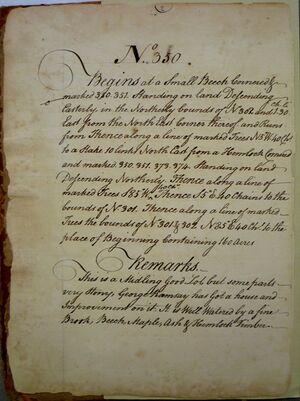 No. 350.
Begins at a Small Beech Cornered &
marked 350. 351. Standing on land Descending
Easterly in the Northerly bounds of N 302 and 1. 30
East from the North East Corner thereof and Runs
from Thence along a line of marked Trees N 5 W 40 Chs
to a Stake 10 links North East from a Hemlock Cornered
and marked 350. 351. 373. 374. Standing on land
Descending Northerly Thence along a line of
marked Trees S 85 W Thence S 5 E 40 Chains to the
bounds of No 301. Thence along a line of marked
Trees the bounds of N 301 & 302. N 85 E 40 Chs. to the
place of Beginning Containing 160 Acres
Remarks.
This is a Midling Good Lot but some parts
very Stony, George Ramsay has Got a house and
Improvement on it. It is Well Watered by a fine
Brook, Beech, Maple, Ash & Hemlock Timber.